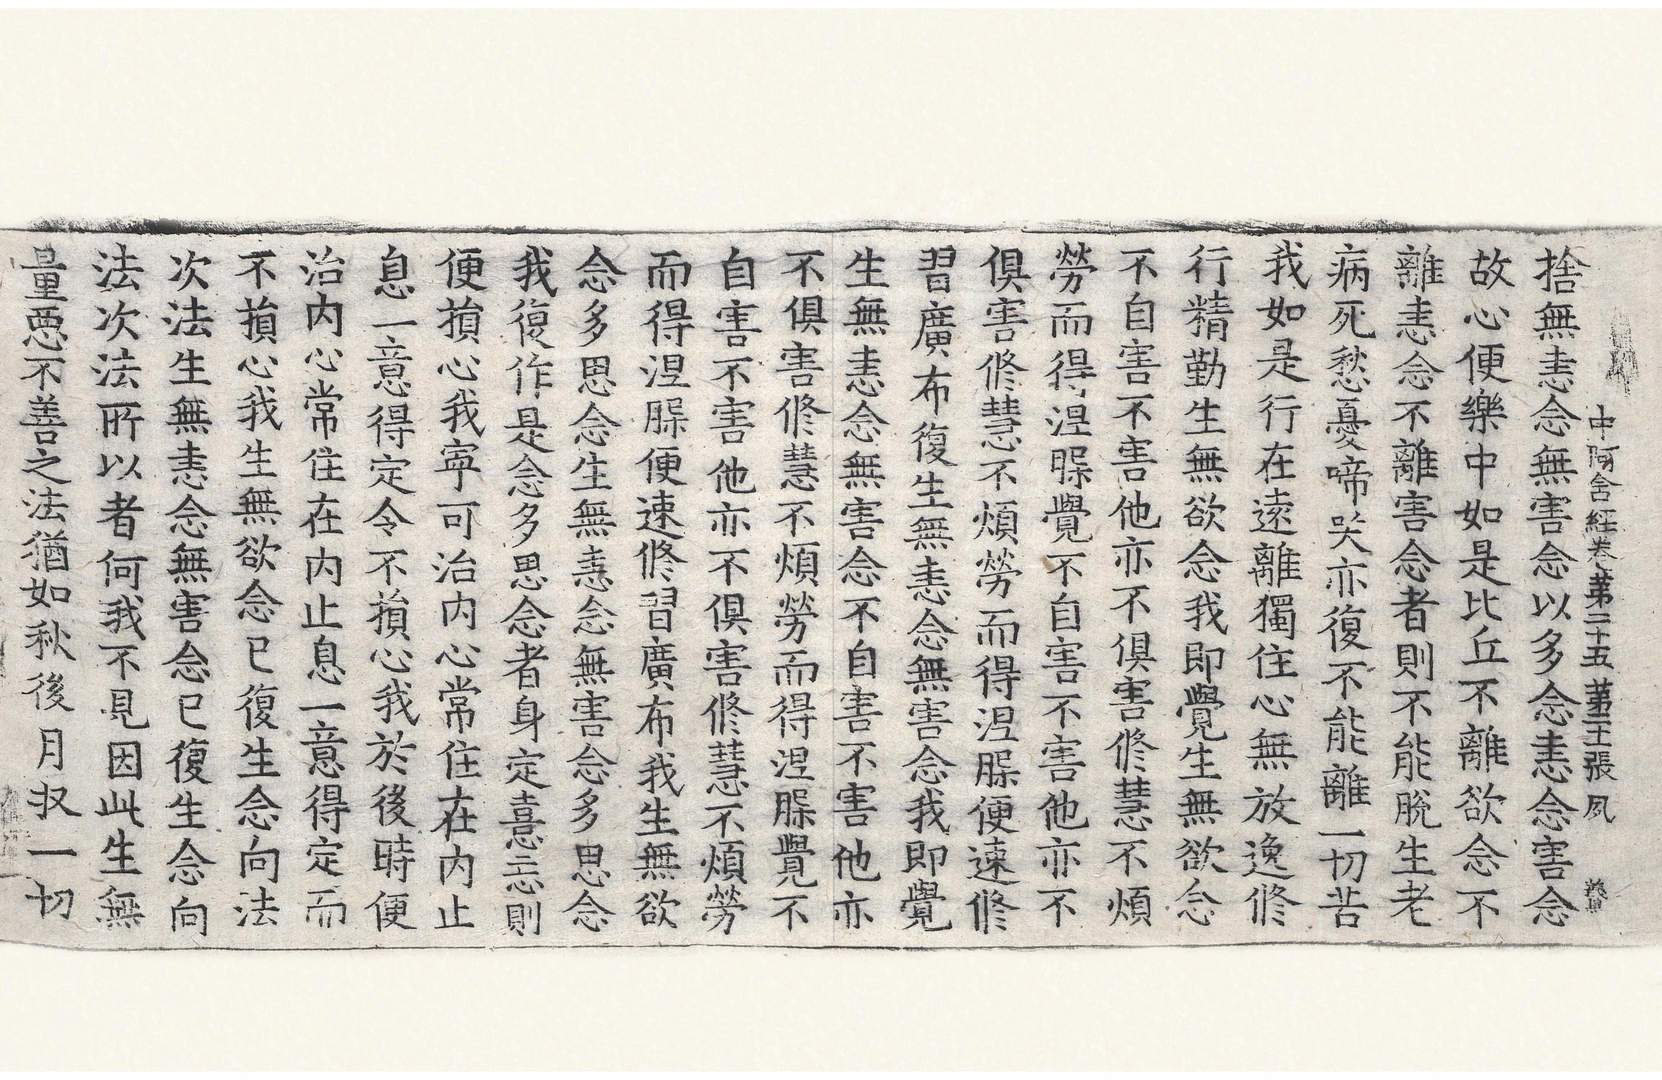 中阿含經卷第二十五 第三張 夙
捨無恚念無害念以多念恚念害念
故心便樂中如是比丘不離欲念不
離恚念不離害念者則不能脫生老
病死愁憂啼哭亦復不能離一切苦
我如是行在遠離獨住心無放逸修
行精勤生無欲念我即覺生無欲念
不自害不害他亦不俱害修慧不煩
勞而得涅槃覺不自害不害他亦不
俱害修慧不煩勞而得涅槃便速修
習廣布復生無恚念無害念我即覺
生無恚念無害念不自害不害他亦
不俱害修慧不煩勞而得涅槃覺不
自害不害他亦不俱害修慧不煩勞
而得涅槃便速修習廣布我生無欲
念多思念生無恚念無害念多思念
我復作是念多思念者身定憙忘則
便損心我寧可治内心常住在内止
息一意得定令不損心我於後時便
治内心常住在内止息一意得定而
不損心我生無欲念已復生念向法
次法生無恚念無害念已復生念向
法次法所以者何我不見因此生無
量惡不善之法猶如秋後月収一切